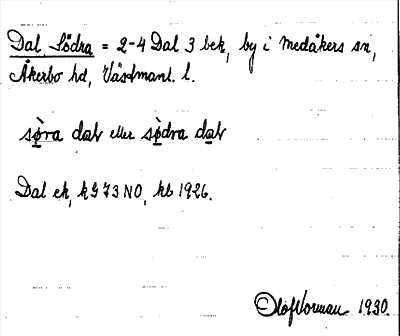 Dal, Södra = 2-4 Dal 3 bek, by i Medåkers sn,
Åkerbo hd, Västmanl. l.
sø̀ra dɑt eller sø̀dra dɑt
Dal ek, kG 73 NO, kb 1926.
Olof Norman 1930.